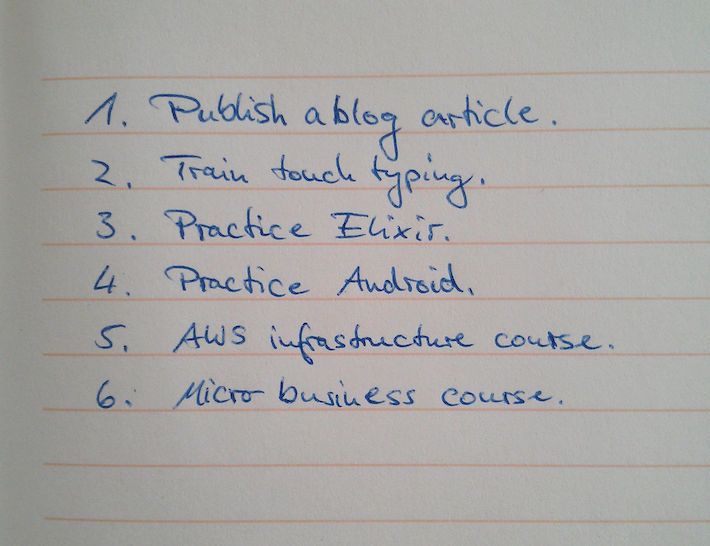 1. Publish a blog article.
2. Train touch typing.
3. Practice Elixir.
4. Practice Android.
5. AWS infrastructure course.
6. Micro business course.